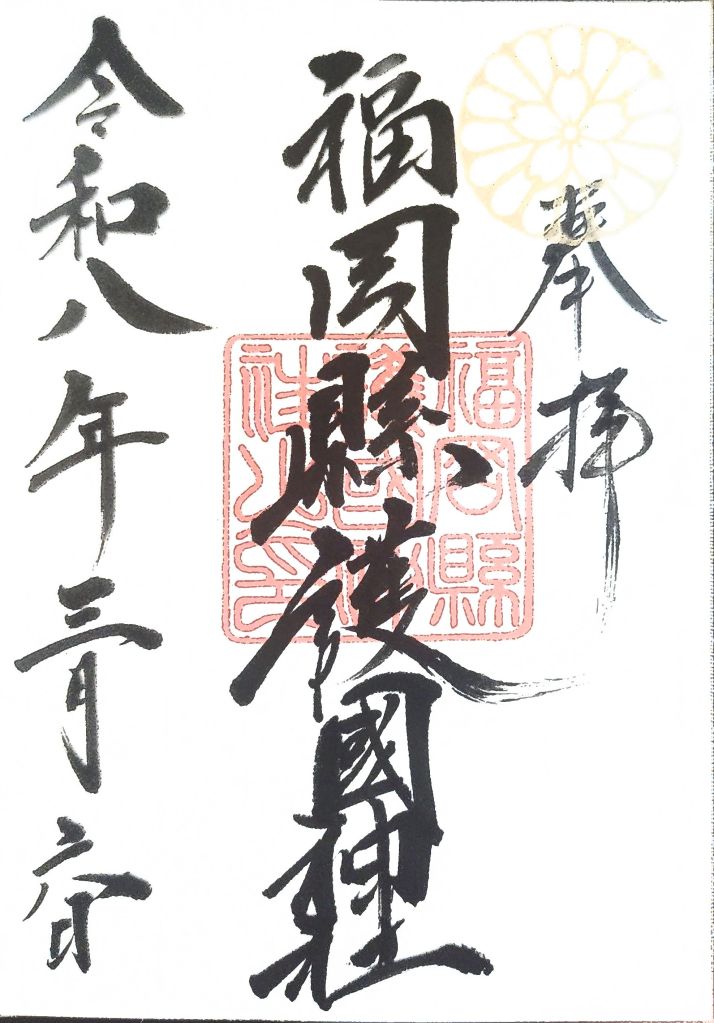 奉拝
福岡縣護國神社
福岡縣
護國神
社之印
令和八年三月六日